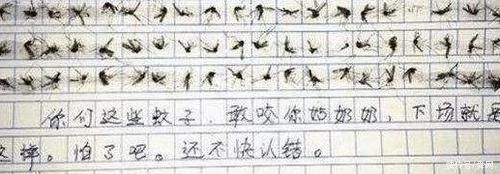 你们这些蚊子，敢咬你奶奶奶，下场就是
这样。怕了吧。还不快认错。